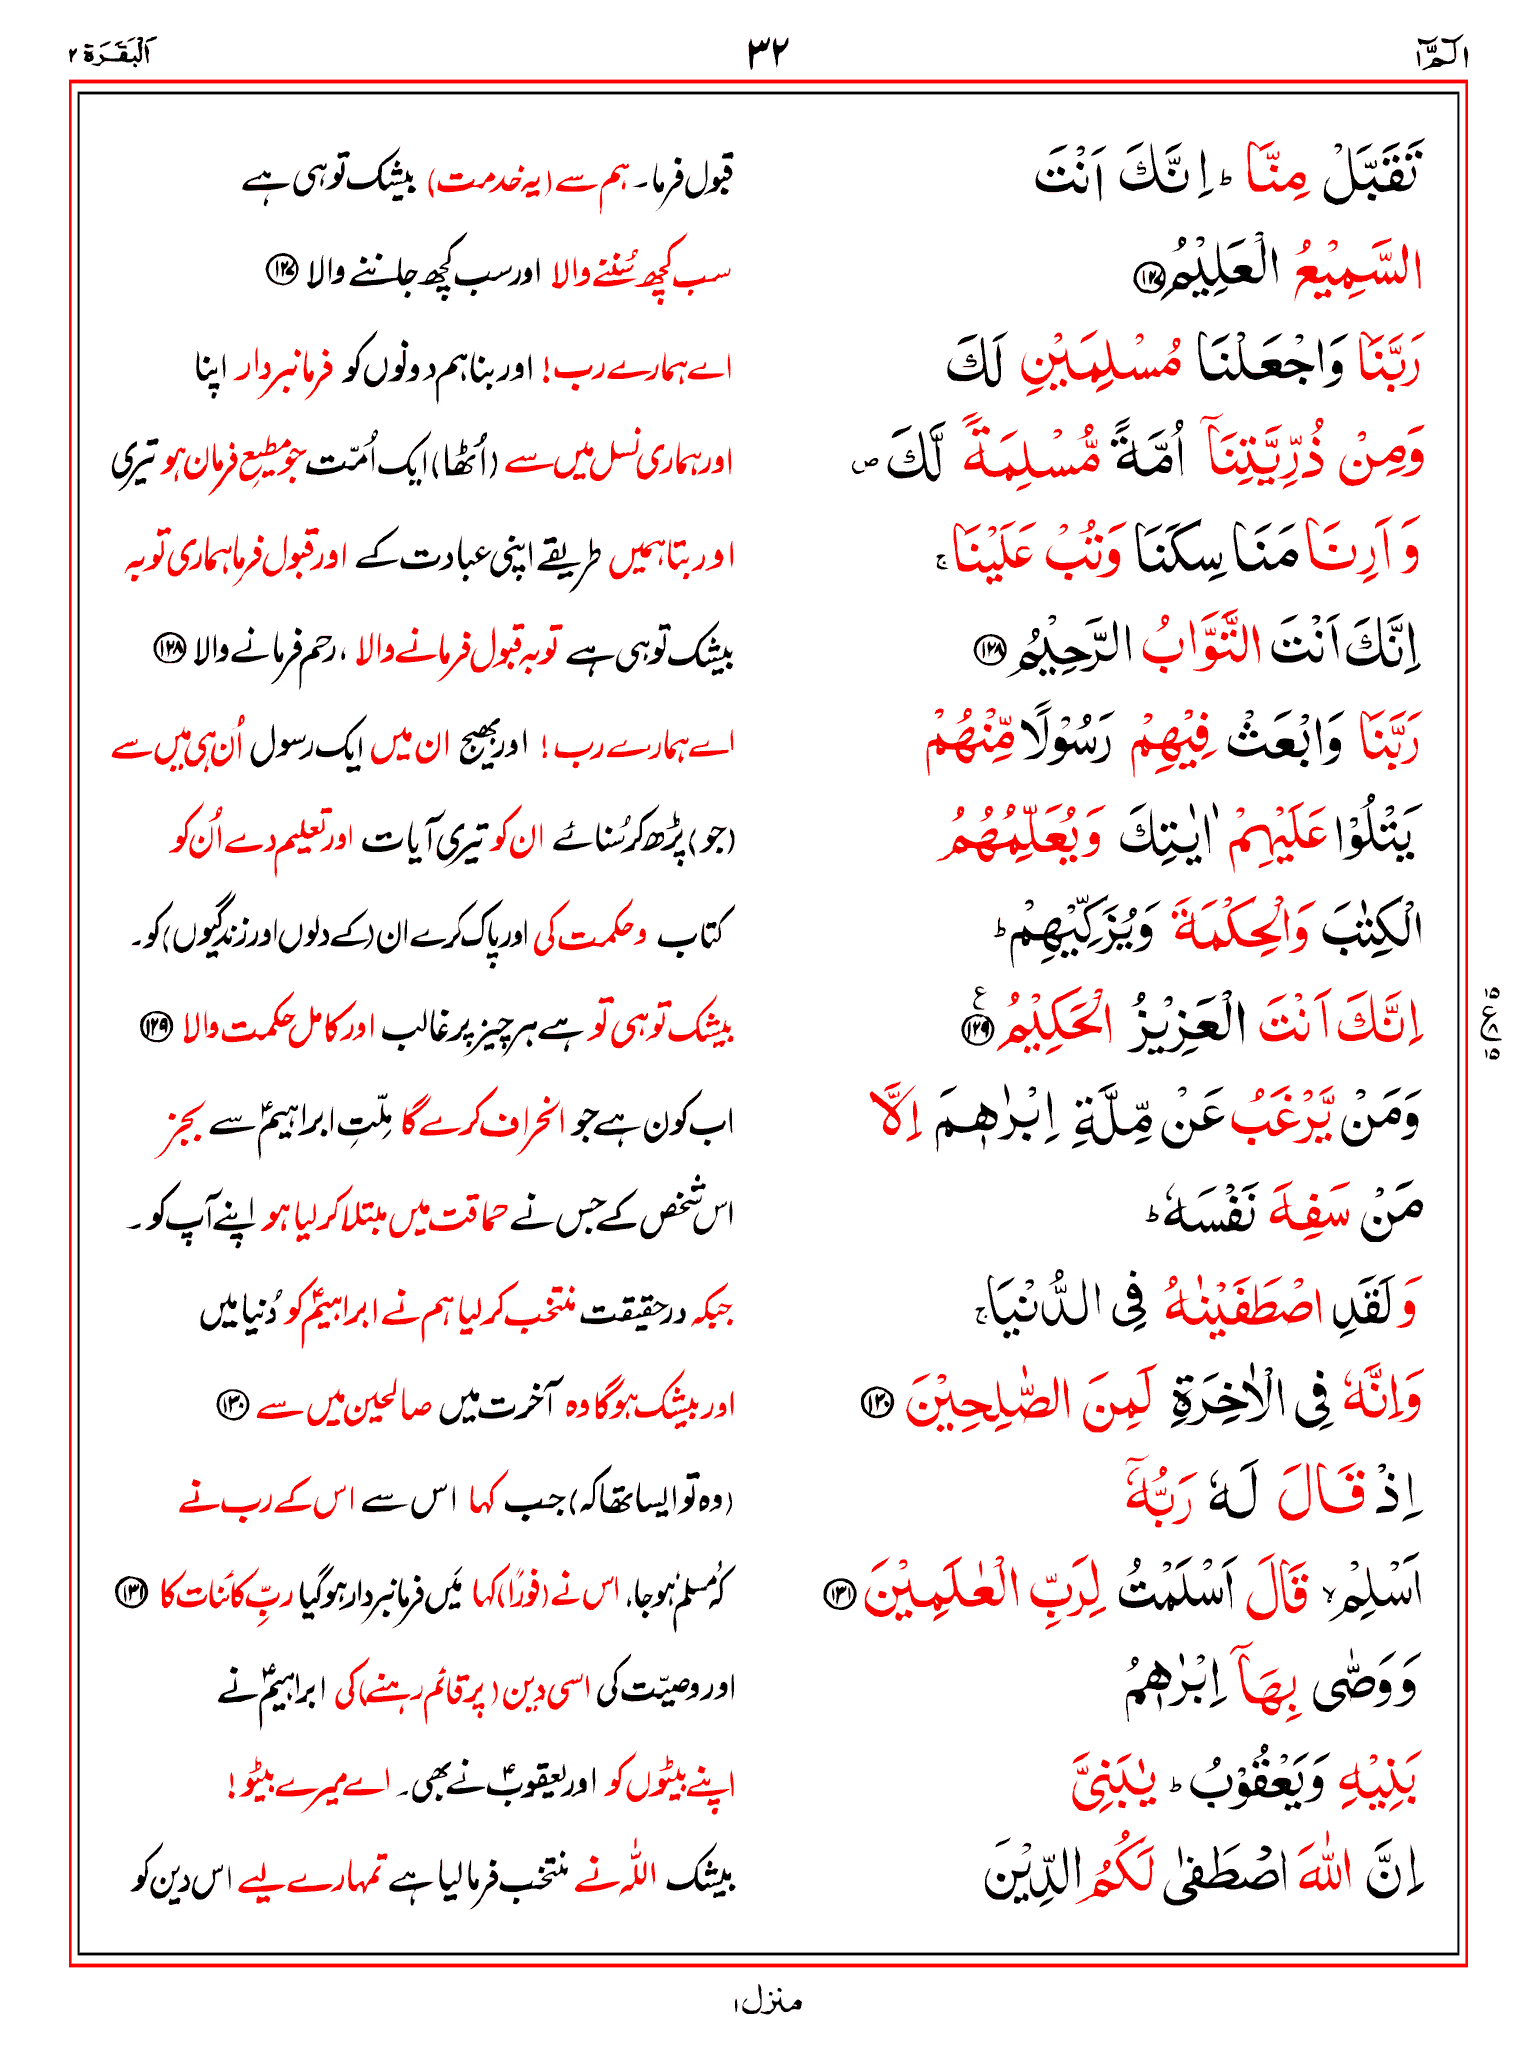 الٓمّٓ ١
٣٢
اَلْبَقَرَة ٢
تَقَبَّلْ مِنَّا ؕ اِنَّكَ اَنْتَ
قبول فرما۔ ہم سے (یہ خدمت) بیشک تو ہی ہے
السَّمِيْعُ الْعَلِيْمُ ﴿۱۲۷﴾
سب کچھ سُننے والا اور سب کچھ جاننے والا ﴿۱۲۷﴾
رَبَّنَا وَاجْعَلْنَا مُسْلِمَيْنِ لَكَ
اے ہمارے رب! اور بنا ہم دونوں کو فرمانبردار اپنا
وَمِنْ ذُرِّيَّتِنَاۤ اُمَّةً مُّسْلِمَةً لَّكَ ص
اور ہماری نسل میں سے (اُٹھا) ایک اُمّت جو مطیعِ فرمان ہو تیری
وَ اَرِنَا مَنَاسِكَنَا وَتُبْ عَلَيْنَا ۚ
اور بتا ہمیں طریقے اپنی عبادت کے اور قبول فرما ہماری توبہ
اِنَّكَ اَنْتَ التَّوَّابُ الرَّحِيْمُ ﴿۱۲۸﴾
بیشک تو ہی ہے توبہ قبول فرمانے والا، رحم فرمانے والا ﴿۱۲۸﴾
رَبَّنَا وَابْعَثْ فِيْهِمْ رَسُوْلًا مِّنْهُمْ
اے ہمارے رب! اور بھیج ان میں ایک رسول اُن ہی میں سے
يَتْلُوْا عَلَيْهِمْ اٰيٰتِكَ وَيُعَلِّمُهُمُ
(جو) پڑھ کر سُنائے ان کو تیری آیات اور تعلیم دے اُن کو
الْكِتٰبَ وَالْحِكْمَةَ وَيُزَكِّيْهِمْ ؕ
کتاب و حکمت کی اور پاک کرے ان (کے دلوں اور زندگیوں) کو۔
اِنَّكَ اَنْتَ الْعَزِيْزُ الْحَكِيْمُ ﴿۱۲۹﴾ ع
بیشک تو ہی تو ہے ہر چیز پر غالب اور کامل حکمت والا ﴿۱۲۹﴾
۱۵ ع ۸ ۱۵
وَمَنْ يَّرْغَبُ عَنْ مِّلَّةِ اِبْرٰهٖمَ اِلَّا
اب کون ہے جو انحراف کرے گا مِلّتِ ابراہیمؑ سے بجز
مَنْ سَفِهَ نَفْسَهٗ ؕ
اس شخص کے جس نے حماقت میں مبتلا کر لیا ہو اپنے آپ کو۔
وَلَقَدِ اصْطَفَيْنٰهُ فِى الدُّنْيَا ۚ
جبکہ درحقیقت منتخب کر لیا ہم نے ابراہیمؑ کو دُنیا میں
وَاِنَّهٗ فِى الْاٰخِرَةِ لَمِنَ الصّٰلِحِيْنَ ﴿۱۳۰﴾
اور بیشک ہوگا وہ آخرت میں صالحین میں سے ﴿۱۳۰﴾
اِذْ قَالَ لَهٗ رَبُّهٗۤ
(وہ تو ایسا تھا کہ) جب کہا اس سے اس کے رب نے
اَسْلِمْ ۙ قَالَ اَسْلَمْتُ لِرَبِّ الْعٰلَمِيْنَ ﴿۱۳۱﴾
کہ مُسلم ہو جا، اس نے (فوراً) کہا مَیں فرمانبردار ہو گیا ربِّ کائنات کا ﴿۱۳۱﴾
وَوَصّٰى بِهَاۤ اِبْرٰهٖمُ
اور وصیّت کی اسی دین (پر قائم رہنے) کی ابراہیمؑ نے
بَنِيْهِ وَيَعْقُوْبُ ؕ يٰبَنِىَّ
اپنے بیٹوں کو اور یعقوبؑ نے بھی۔ اے میرے بیٹو!
اِنَّ اللّٰهَ اصْطَفٰى لَكُمُ الدِّيْنَ
بیشک اللّٰہ نے منتخب فرما لیا ہے تمہارے لیے اس دین کو
منزل ۱